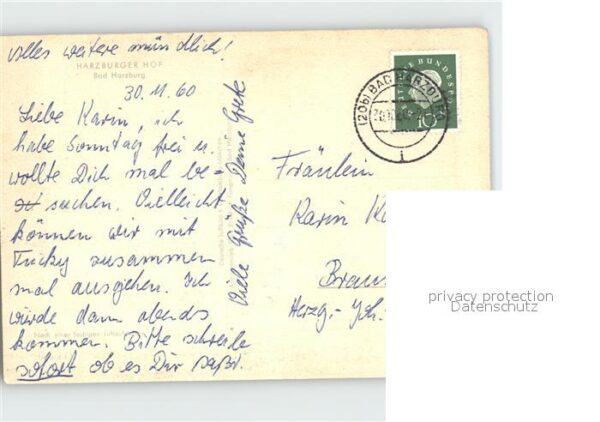 alles weitere mündlich!
HARZBURGER HOF
Bad Harzburg
30.11.60
Liebe Karin, ich
habe Sonntag frei u.
wollte Dich mal be-
suchen. Vielleicht
können wir mit
Tucky zusammen
mal ausgehen. Ich
würde dann abends
kommen. Bitte schreibe
sofort ob es Dir paßt.
Viele Grüße Deine Grete
(20b) BAD HARZBURG
DEUTSCHE BUNDESPOST
10
Fräulein
Karin
Braun
Herzog-Joh.-
privacy protection
Datenschutz